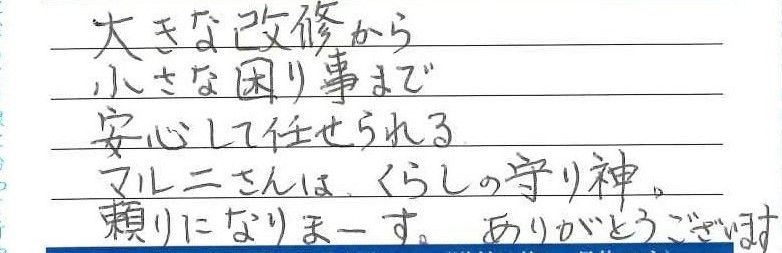 大きな改修から
小さな困り事まで
安心して任せられる
マルニさんは、くらしの守り神。
頼りになりまーす。 ありがとうございます